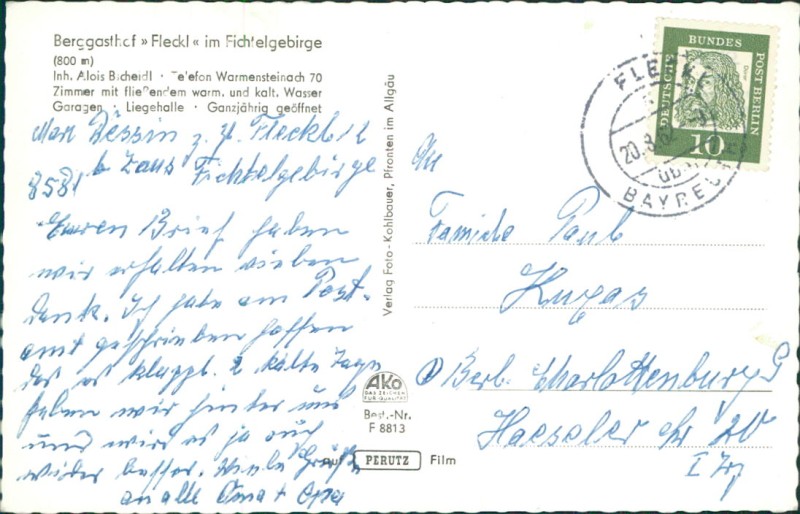 Berggasthof » Fleckl « im Fichtelgebirge
(800 m)
Inh. Alois Bscheidl · Telefon Warmensteinach 70
Zimmer mit fließendem warm. und kalt. Wasser
Garagen · Liegehalle · Ganzjährig geöffnet
z. Z. Fleckl 12
8581 b Fichtelgebirge
Euren Brief haben
wir erhalten vielen
Dank. Ich habe am Post-
amt geschrieben hoffen
das es klappt. 2 kalte Tage
haben wir hinter uns
und wird es ja auch
wider besser. Viele Grüße
an alle Oma + Opa
Verlag Foto-Kohlbauer, Pfronten im Allgäu
AKO
DAS ZEICHEN
FÜR QUALITÄT
Best.-Nr.
F 8813
auf PERUTZ Film
DEUTSCHE BUNDES POST BERLIN
Dürer
10
FLECKL
BAYREU
An
Familie Paul
Kugas
Berl. Charlottenburg 9
Haeseler Str 20